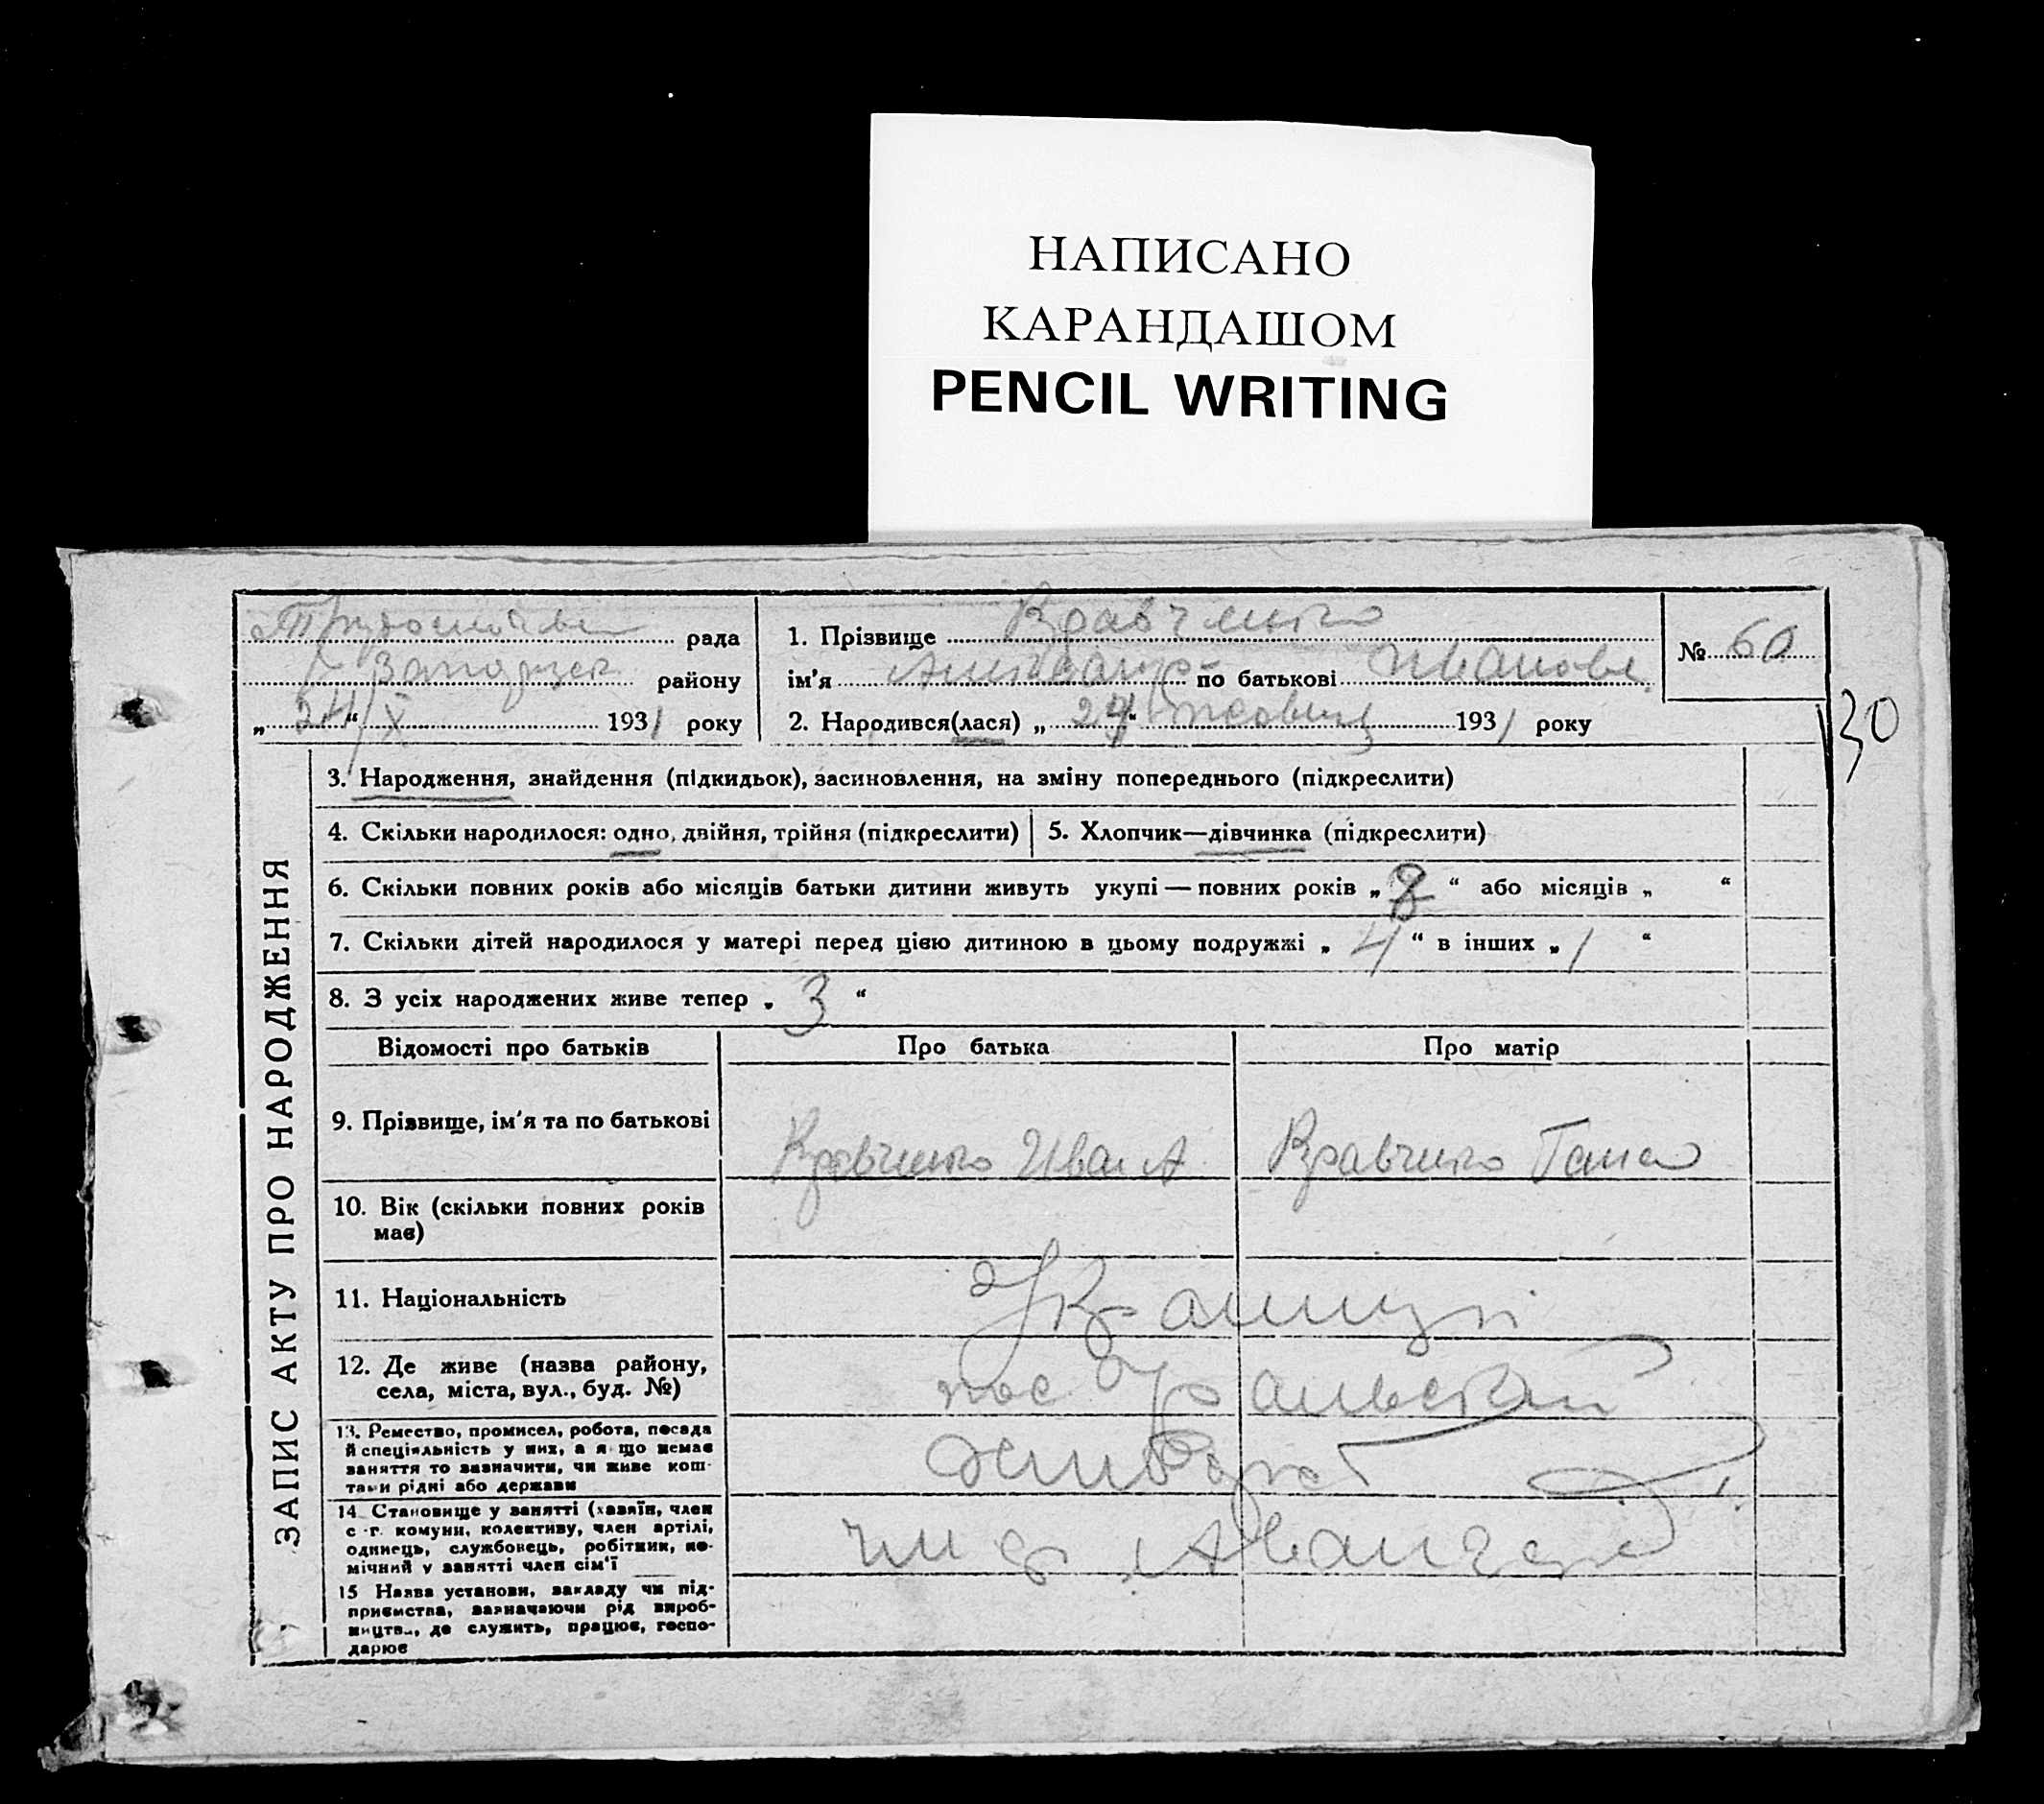 НАПИСАНО
КАРАНДАШОМ
PENCIL WRITING
рада
район
„ 24/X “ 1931 року
1. Прізвище Кравченко
ім'я по батькові Иванова
2. Народився(лася) „ 24 “ жовтня 1931 року
№ 60
30
ЗАПИС АКТУ ПРО НАРОДЖЕННЯ
3. Народження, знайдення (підкидьок), засиновлення, на зміну попереднього (підкреслити)
4. Скільки народилося: одно, двійня, трійня (підкреслити)
5. Хлопчик—дівчинка (підкреслити)
6. Скільки повних років або місяців батьки дитини живуть укупі — повних років „ 8 “ або місяців „ “
7. Скільки дітей народилося у матері перед цією дитиною в цьому подружжі „ 4 “ в інших „ 1 “
8. З усіх народжених живе тепер „ 3 “
Відомості про батьків
Про батька
Про матір
9. Прізвище, ім'я та по батькові
Кравченко Иван А
Кравченко Ганна
10. Вік (скільки повних років
має)
11. Національність
Украинци
12. Де живе (назва району,
села, міста, вул., буд. №)
пос
13. Ремество, промисел, робота, посада
й спеціяльність у них, а я що немає
заняття то зазначити, чи живе кош-
тами рідні або держави
14. Становище у занятті (хазяїн, член
с.-г. комуни, колективу, член артілі,
одинець, службовець, робітник, по-
мічний у занятті член сім'ї
15 Назва установи, закладу чи під-
приємства, зазначаючи рід вироб-
ництва, де служить, працює, госпо-
дарює